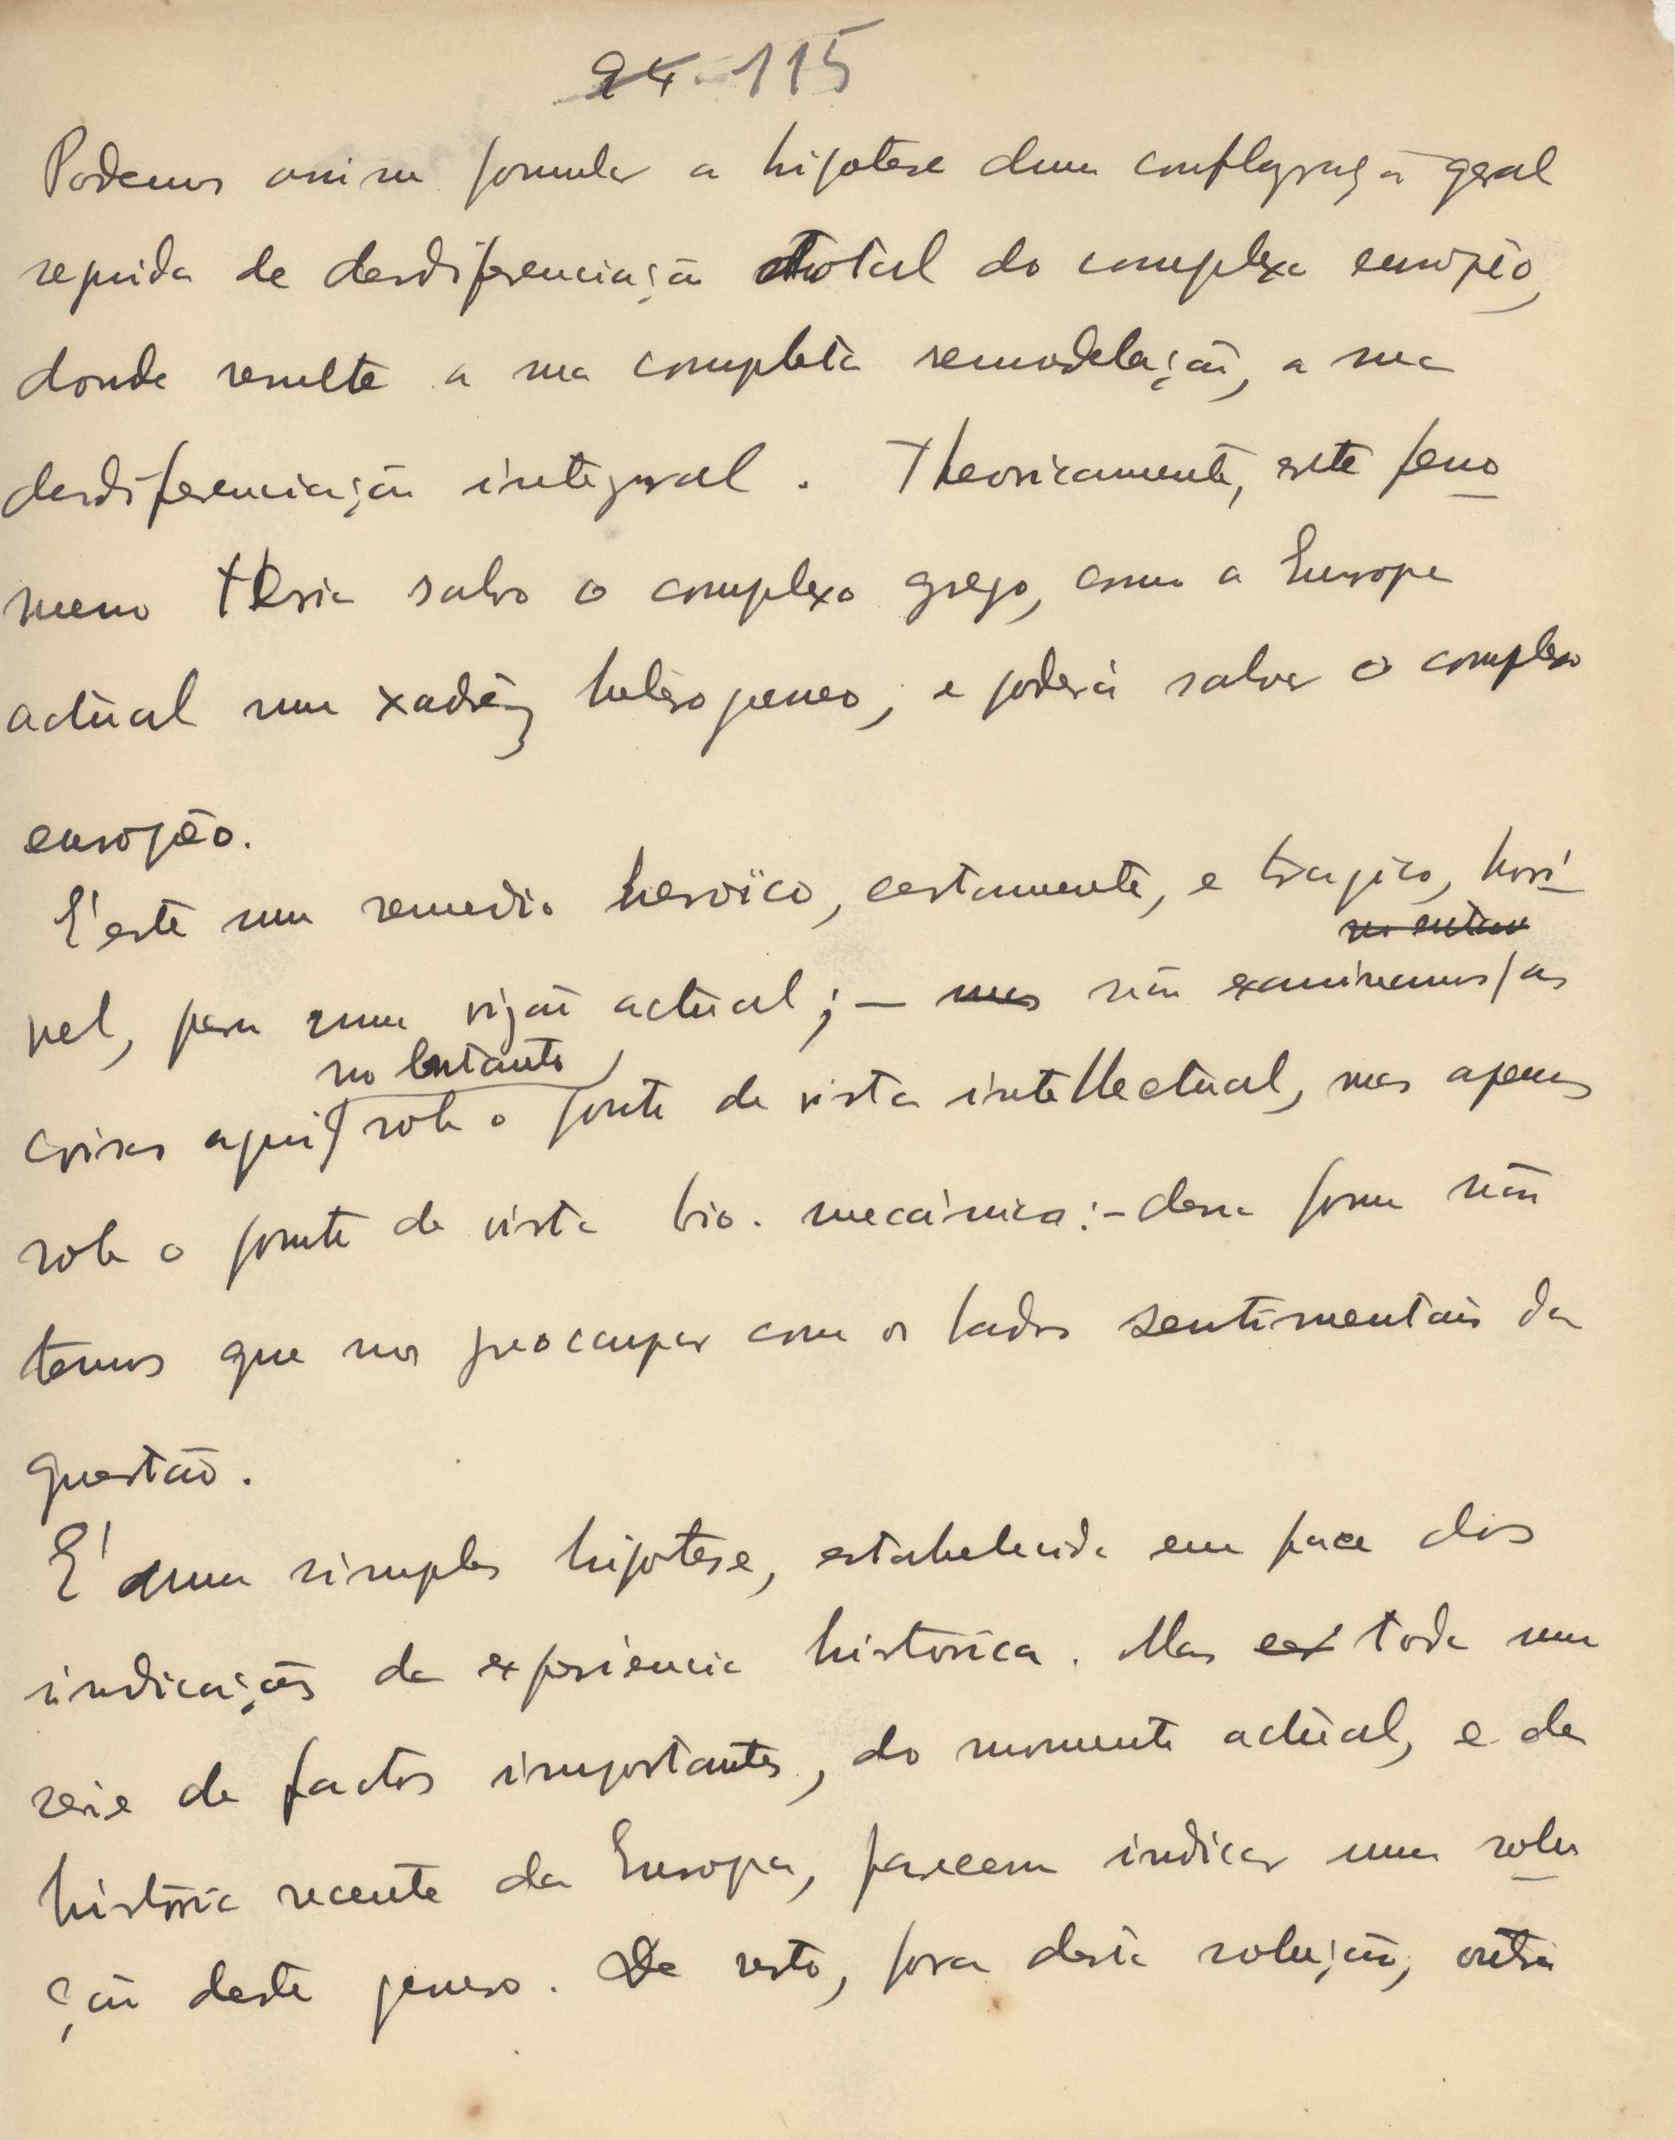 94 115
Podemos assim formular a hipotese duma conflagração geral
seguida de desdiferenciação total do complexo européo,
donde resulte a sua completa remodelação, a sua
desdiferenciação integral. Theoricamente, este feno
meno teria salvo o complexo grego, como a Europa
actual um xadrêz heterogeneo, e poderá salvar o complexo
européo.
E' este um remedio heroïco, certamente, e tragico, horri
no entan
vel, para uma visão actual; – mas não examinamos as
no entanto
coisas aqui sob o ponto de vista intellectual, mas apenas
sob o ponto de vista bio-mecánico: – dessa forma não
temos que nos preocupar com os lados sentimentais da
questão.
E' uma simples hipotese, estabelecida em face das
indicações da experiencia historica. Mas toda uma
serie de factos importantes, do momento actual, e da
história recente da Europa, parecem indicar uma solu
ção deste genero. De resto, fora desta solução, outra